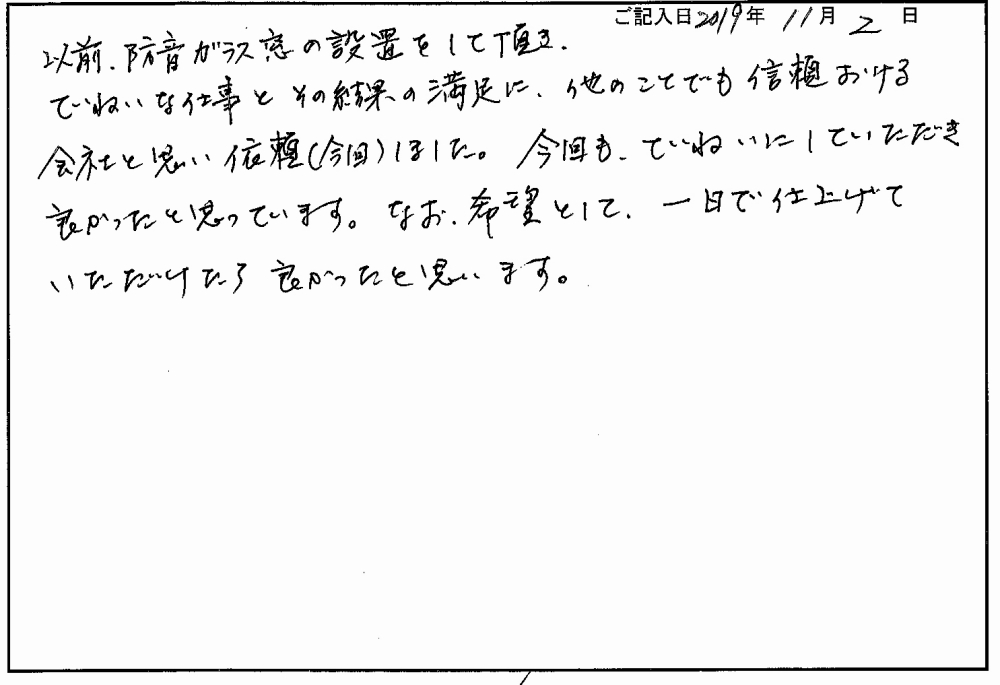 ご記入日2019年 11月 2日
以前、防音ガラス窓の設置をして頂き、
ていねいな仕事とその結果の満足に、他のことでも信頼おける
会社と思い依頼(今回)しました。 今回も、ていねいにしていただき
良かったと思っています。なお、希望として、一日で仕上げて
いただけたら良かったと思います。